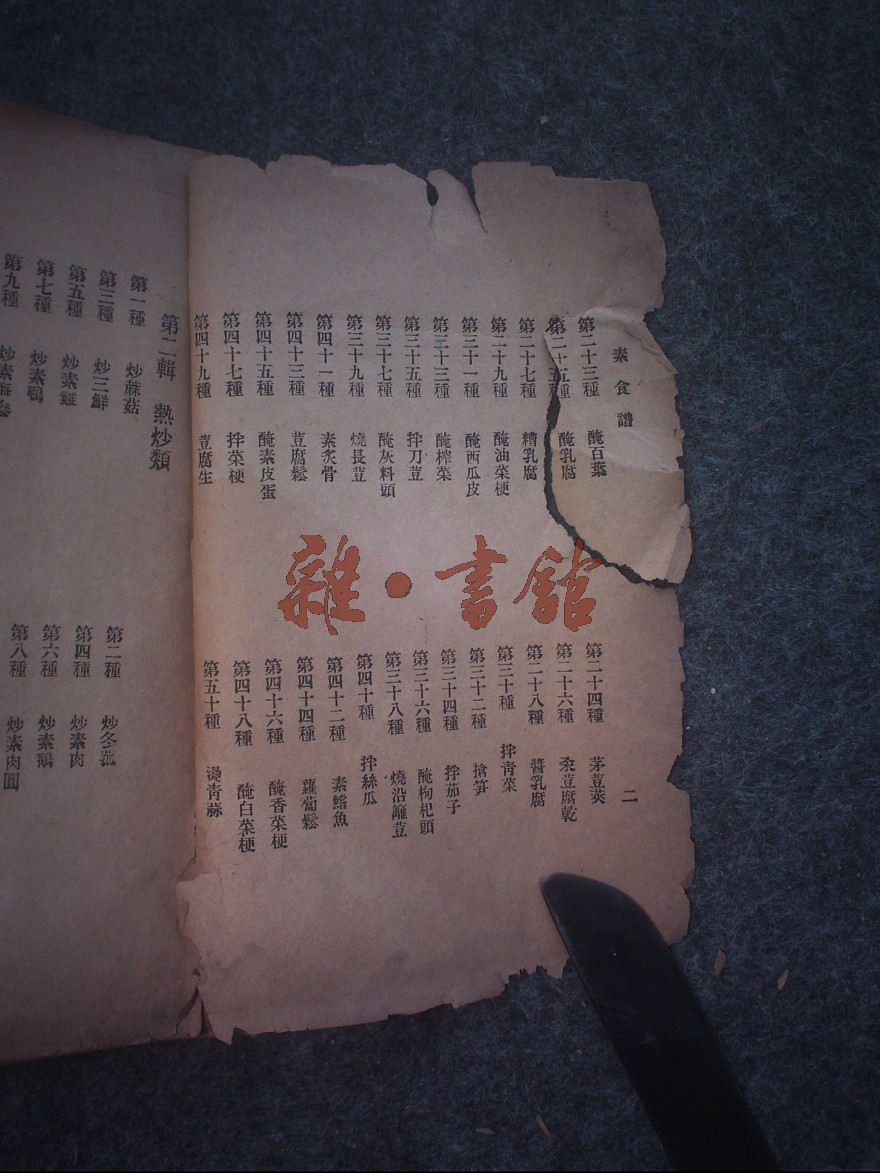 素食譜
第二十三種 醃百葉
第二十五種 醃乳腐
第二十七種 糟乳腐
第二十九種 醃油菜梗
第三十一種 醃西瓜皮
第三十三種 醃榨菜
第三十五種 拌刀荳
第三十七種 醃灰料頭
第三十九種 燒長荳
第四十一種 素炙骨
第四十三種 荳腐鬆
第四十五種 醃素皮蛋
第四十七種 拌菜梗
第四十九種 荳腐生
二
第二十四種 茅荳莢
第二十六種 汆荳腐乾
第二十八種 醬乳腐
第三十種 拌青菜
第三十二種 搶笋
第三十四種 拌茄子
第三十六種 醃枸杞頭
第三十八種 燒沿籬荳
第四十種 拌絲瓜
第四十二種 素鱨魚
第四十四種 蘿蔔鬆
第四十六種 醃香菜梗
第四十八種 醃白菜梗
第五十種 湯青蒜
第二輯 熱炒類
第一種 炒蔴菇
第三種 炒三鮮
第五種 炒素雞
第七種 炒素鴨
第九種 炒素海參
第二種 炒冬菰
第四種 炒素肉
第六種 炒素鵝
第八種 炒素肉圓
雜·書館